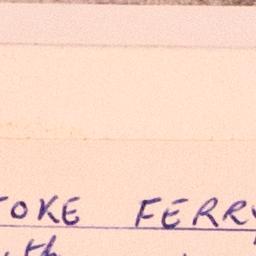 TOKE FERRY
th